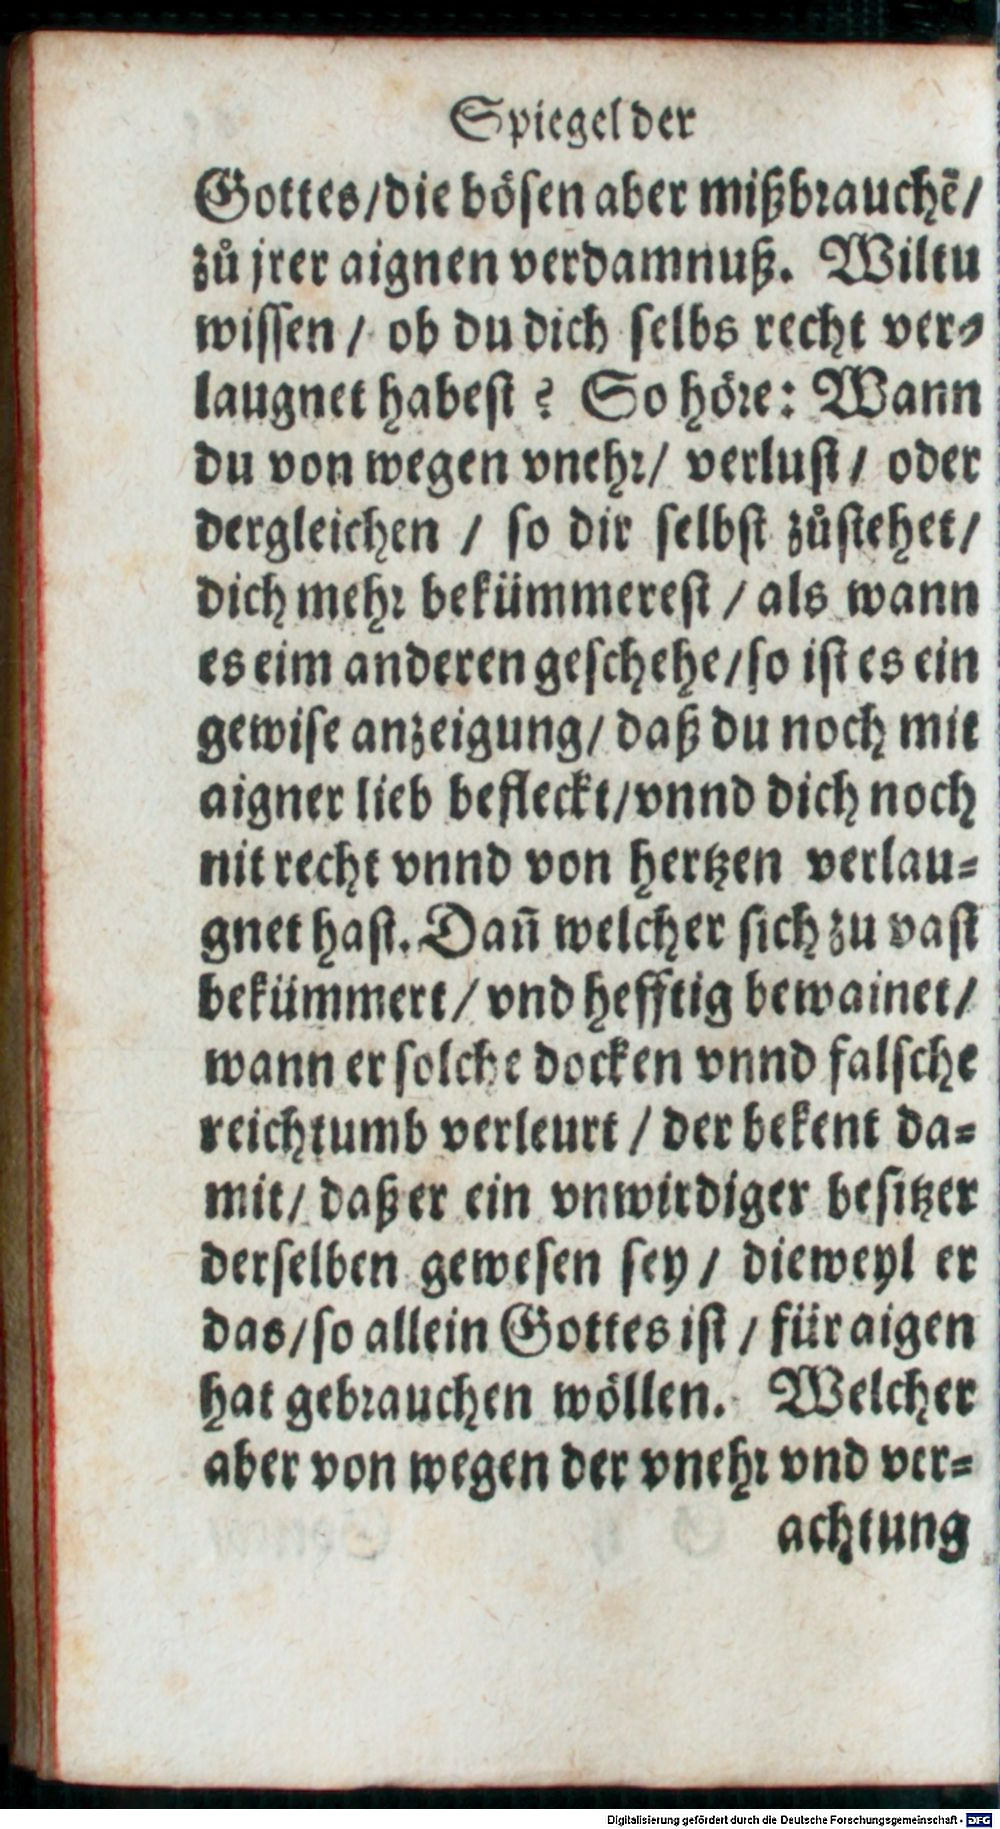 Spiegel der
Gottes/die bösen aber mißbrauchẽ/
zů jrer aignen verdamnuß. Wiltu
wissen / ob du dich selbs recht ver-
laugnet habest ? So höre: Wann
du von wegen vnehr/ verlust / oder
dergleichen / so dir selbst zůstehet/
dich mehr bekümmerest / als wann
es eim anderen geschehe/so ist es ein
gewise anzeigung/ daß du noch mit
aigner lieb befleckt/vnnd dich noch
nit recht vnnd von hertzen verlau-
gnet hast. Dañ welcher sich zu vast
bekümmert / vnd hefftig bewainet/
wann er solche docken vnnd falsche
reichtumb verleurt / der bekent da-
mit/ daß er ein vnwirdiger besitzer
derselben gewesen sey / dieweyl er
das/so allein Gottes ist / für aigen
hat gebrauchen wöllen. Welcher
aber von wegen der vnehr vnd ver-
achtung
Digitalisierung gefördert durch die Deutsche Forschungsgemeinschaft - DFG